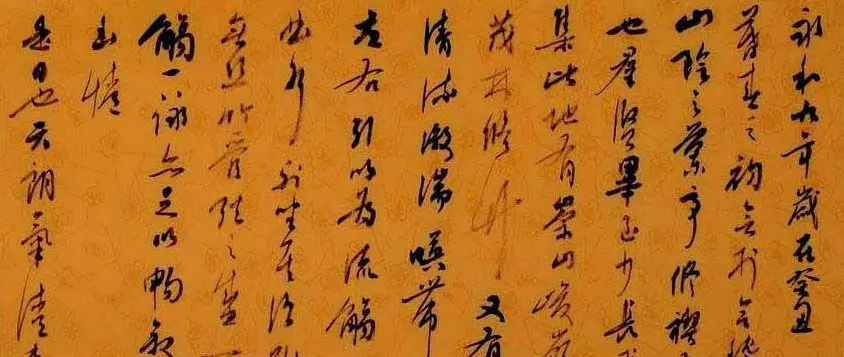 永和九年歲在癸丑
暮春之初會於會稽
山陰之蘭亭修禊
也羣賢畢至少長
集此地有崇山峻嶺
茂林修竹又有
清流激湍暎帶
左右引以為流觴
曲水列坐其次雖
無絲竹管弦之盛一
觴一詠亦足以暢敘
幽情
是日也天朗氣清